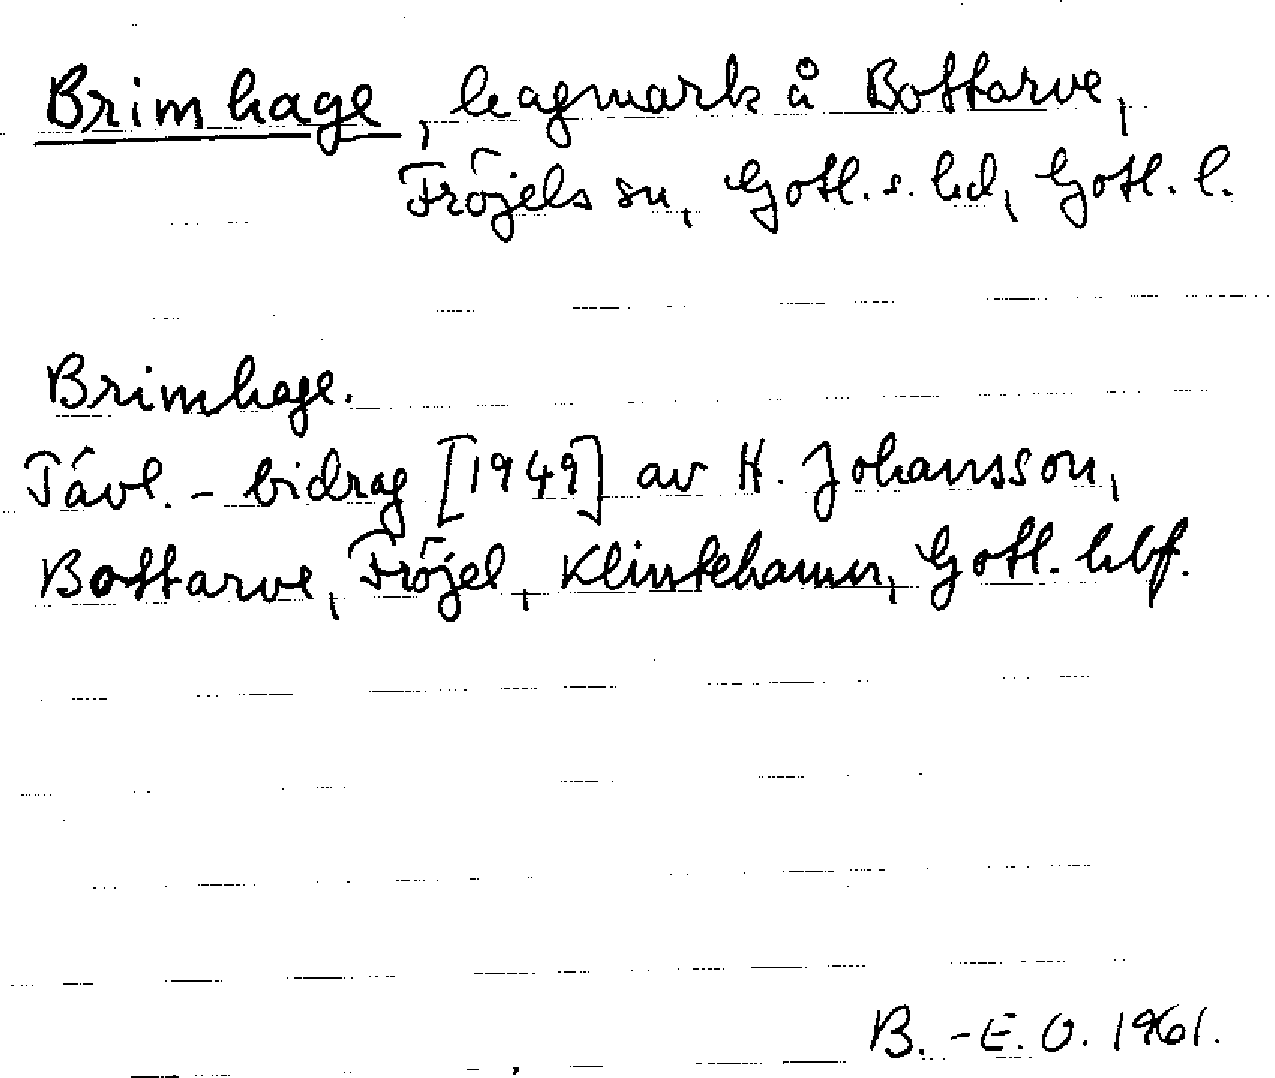 Brimhage, hagmark å Bottarve,
Fröjels sn, Gotl. s. hd, Gotl. l.
Brimhage.
Tävl.-bidrag [1949] av H. Johansson,
Bottarve, Fröjel, Klintehamn, Gotl. hbf.
B.-E. O. 1961.